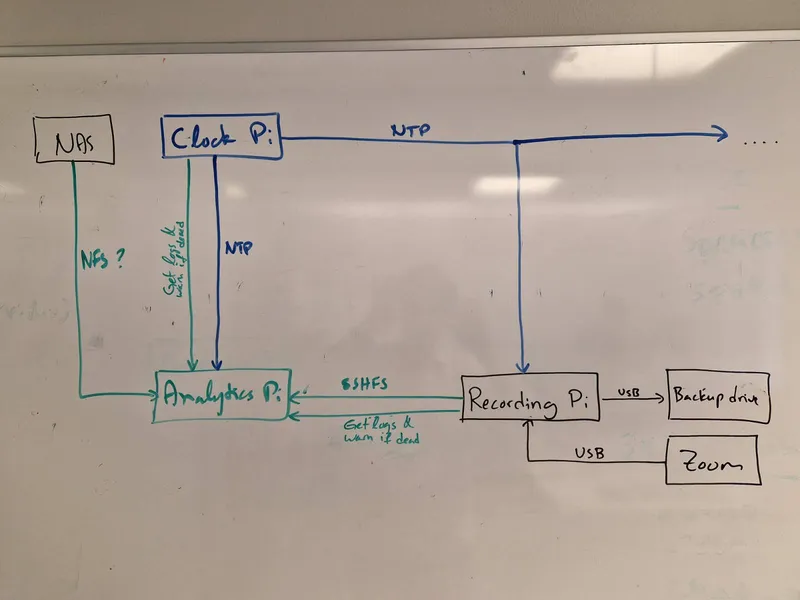 NAS
Clock Pi
NTP
....
NFS ?
Get logs &
warn if dead
NTP
Analytics Pi
SSHFS
Get logs &
warn if dead
Recording Pi
USB
Backup drive
USB
Zoom